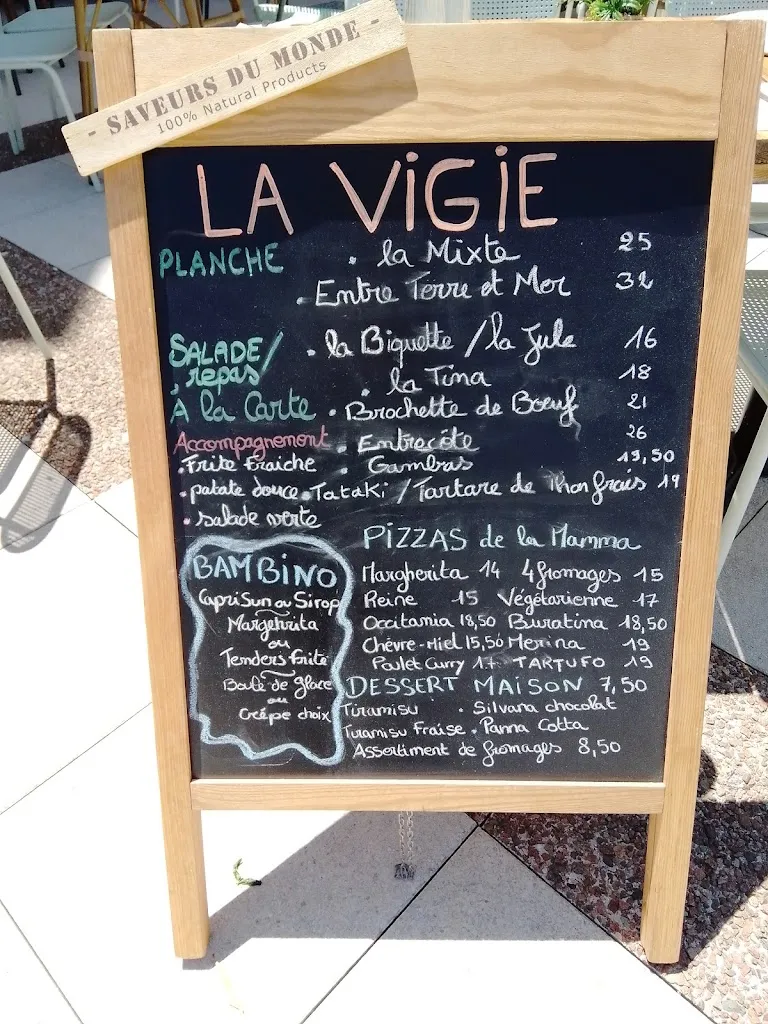 - SAVEURS DU MONDE -
100% Natural Products
LA ViGiE
PLANCHE . la Mixte 25
. Entre Terre et Mer 32
SALADE/ . la Biquette / la Jule 16
repas/ . la Tina 18
À la Carte . Brochette de Boeuf 21
Accompagnement . Entrecôte 26
. Frite fraiche . Gambas 19,50
. patate douce . Tataki / Tartare de Thon frais 19
. salade verte
PiZZAS de la Mamma
Margherita 14 4 fromages 15
Reine 15 Végétarienne 17
Occitania 18,50 Buratina 18,50
Chèvre-Miel 15,50 Merina 19
Poulet Curry 17 TARTUFO 19
BAMBiNO
CapriSun ou Sirop
Margehrita
ou
Tenders frite
Boule de glace
ou
Crêpe choix
DESSERT MAiSON 7,50
Tiramisu . Silvana chocolat
Tiramisu Fraise . Panna Cotta
Assortiment de fromages 8,50